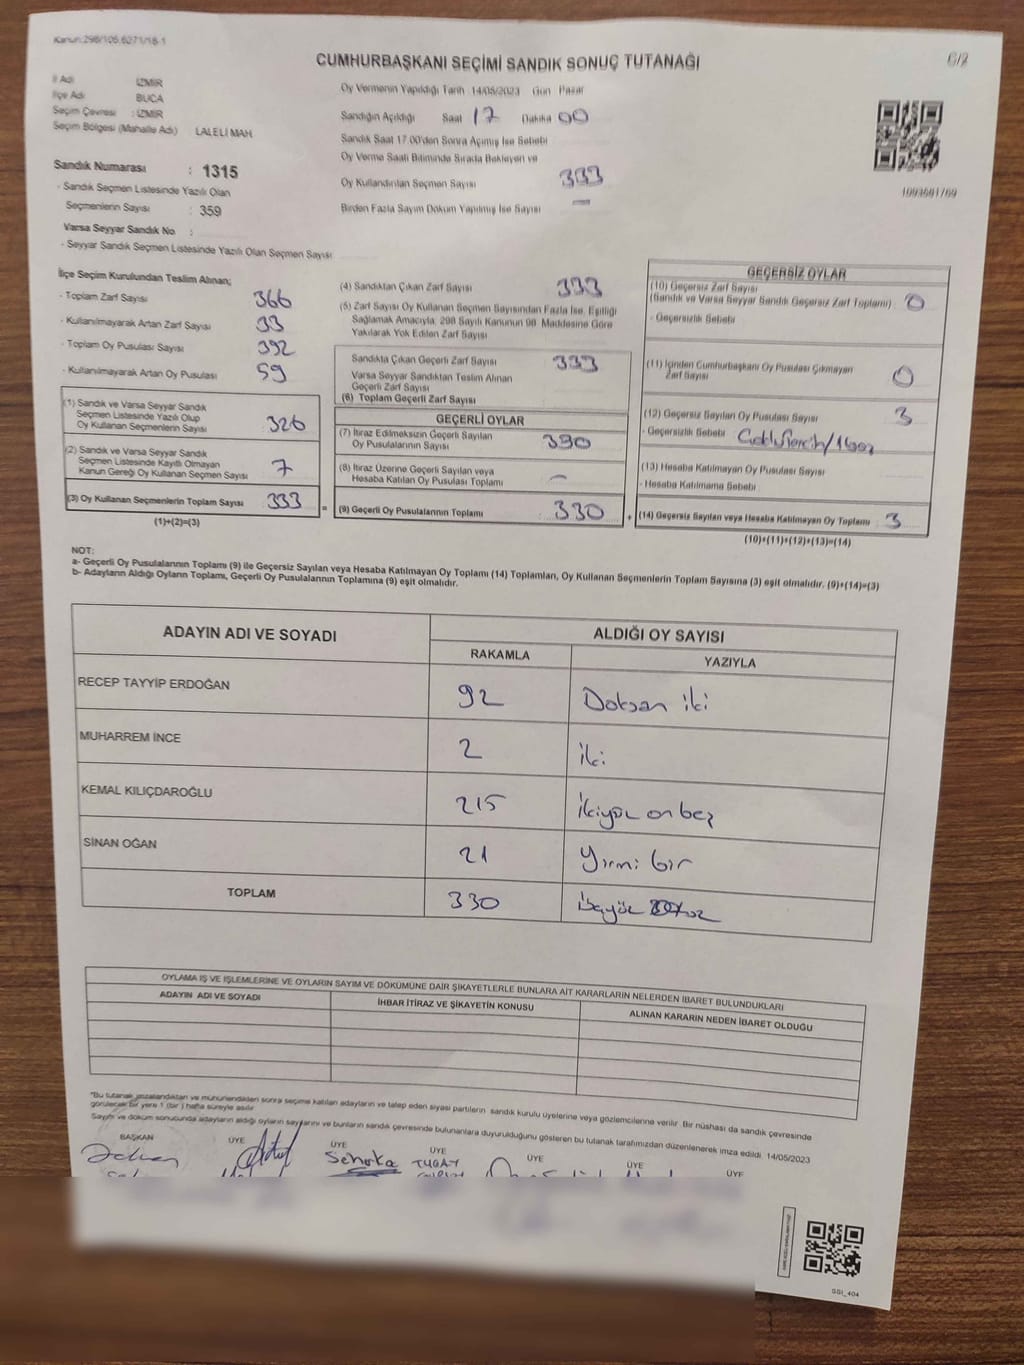 Kanun:298/105,6271/18-1
CUMHURBAŞKANI SEÇİMİ SANDIK SONUÇ TUTANAĞI
6/2
İl Adı İZMİR
İlçe Adı BUCA
Seçim Çevresi : İZMİR
Seçim Bölgesi (Mahalle Adı) LALELİ MAH
Sandık Numarası : 1315
- Sandık Seçmen Listesinde Yazılı Olan
Seçmenlerin Sayısı : 359
Varsa Seyyar Sandık No :
- Seyyar Sandık Seçmen Listesinde Yazılı Olan Seçmen Sayısı
Oy Vermenin Yapıldığı Tarih 14/05/2023 Gün Pazar
Sandığın Açıldığı Saat 17 Dakika 00
Sandık Saat 17.00'den Sonra Açılmış İse Sebebi
Oy Verme Saati Bitiminde Sırada Bekleyen ve
Oy Kullandırılan Seçmen Sayısı 333
Birden Fazla Sayım Döküm Yapılmış İse Sayısı —
İlçe Seçim Kurulundan Teslim Alınan;
- Toplam Zarf Sayısı 366
- Kullanılmayarak Artan Zarf Sayısı 33
- Toplam Oy Pusulası Sayısı 392
- Kullanılmayarak Artan Oy Pusulası 59
(1) Sandık ve Varsa Seyyar Sandık
Seçmen Listesinde Yazılı Olup
Oy Kullanan Seçmenlerin Sayısı 326
(2) Sandık ve Varsa Seyyar Sandık
Seçmen Listesinde Kayıtlı Olmayan
Kanun Gereği Oy Kullanan Seçmen Sayısı 7
(3) Oy Kullanan Seçmenlerin Toplam Sayısı 333 =
(1)+(2)=(3)
(4) Sandıktan Çıkan Zarf Sayısı 333
(5) Zarf Sayısı Oy Kullanan Seçmen Sayısından Fazla İse, Eşitliği
Sağlamak Amacıyla, 298 Sayılı Kanunun 98. Maddesine Göre
Yakılarak Yok Edilen Zarf Sayısı
Sandıkta Çıkan Geçerli Zarf Sayısı 333
Varsa Seyyar Sandıktan Teslim Alınan
Geçerli Zarf Sayısı
(6) Toplam Geçerli Zarf Sayısı
GEÇERLİ OYLAR
(7) İtiraz Edilmeksizin Geçerli Sayılan
Oy Pusulalarının Sayısı 330
(8) İtiraz Üzerine Geçerli Sayılan veya
Hesaba Katılan Oy Pusulası Toplamı —
(9) Geçerli Oy Pusulalarının Toplamı 330 +
GEÇERSİZ OYLAR
(10) Geçersiz Zarf Sayısı
(Sandık ve Varsa Seyyar Sandık Geçersiz Zarf Toplamı) 0
- Geçersizlik Sebebi
(11) İçinden Cumhurbaşkanı Oy Pusulası Çıkmayan
Zarf Sayısı 0
(12) Geçersiz Sayılan Oy Pusulası Sayısı 3
- Geçersizlik Sebebi
(13) Hesaba Katılmayan Oy Pusulası Sayısı
- Hesaba Katılmama Sebebi
(14) Geçersiz Sayılan veya Hesaba Katılmayan Oy Toplamı : 3
(10)+(11)+(12)+(13)=(14)
NOT:
a- Geçerli Oy Pusulalarının Toplamı (9) ile Geçersiz Sayılan veya Hesaba Katılmayan Oy Toplamı (14) Toplamları, Oy Kullanan Seçmenlerin Toplam Sayısına (3) eşit olmalıdır. (9)+(14)=(3)
b- Adayların Aldığı Oyların Toplamı, Geçerli Oy Pusulalarının Toplamına (9) eşit olmalıdır.
ADAYIN ADI VE SOYADI ALDIĞI OY SAYISI
RAKAMLA YAZIYLA
RECEP TAYYİP ERDOĞAN 92 Doksan iki
MUHARREM İNCE 2 iki
KEMAL KILIÇDAROĞLU 215 ikiyüz onbeş
SİNAN OĞAN 21 Yirmi bir
TOPLAM 330
OYLAMA İŞ VE İŞLEMLERİNE VE OYLARIN SAYIM VE DÖKÜMÜNE DAİR ŞİKAYETLERLE BUNLARA AİT KARARLARIN NELERDEN İBARET BULUNDUKLARI
ADAYIN ADI VE SOYADI İHBAR İTİRAZ VE ŞİKAYETİN KONUSU ALINAN KARARIN NEDEN İBARET OLDUĞU
*Bu tutanak imzalandıktan ve mühürlendikten sonra seçime katılan adayların ve talep eden siyasi partilerin sandık kurulu üyelerine veya gözlemcilerine verilir. Bir nüshası da sandık çevresinde
görülecek bir yere 1 (bir) hafta süreyle asılır.
Sayım ve döküm sonucunda adayların aldığı oyların sayılarını ve bunların sandık çevresinde bulunanlara duyurulduğunu gösteren bu tutanak tarafımızdan düzenlenerek imza edildi. 14/05/2023
BAŞKAN ÜYE ÜYE ÜYE ÜYE ÜYE ÜYE
TUGAY
SSI_404